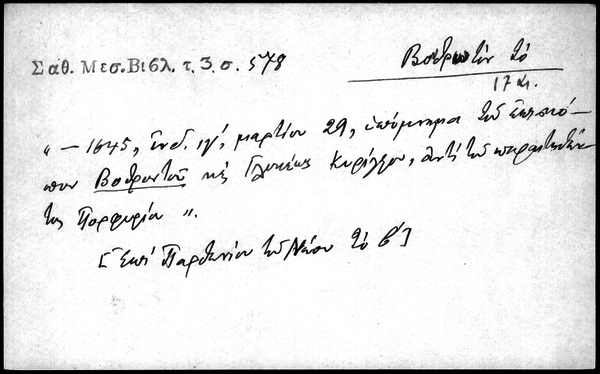 Σάθ. Μεσ. Βιβλ. τ. 3. σ. 578
Βοθρωτὸν τὸ
17 αι.
" — 1645, ἰνδ. ιγ', μαρτίου 29, ὑπόμνημα τοῦ ἐπισκό-
που Βοθρωτοῦ κὲ Γλυκέως Κυρίλλου, ἀντὶ τοῦ παραιτησαμέν-
του Πορφυρίου ".
[Ἐπὶ Παρθενίου τοῦ Νέου τὸ β']